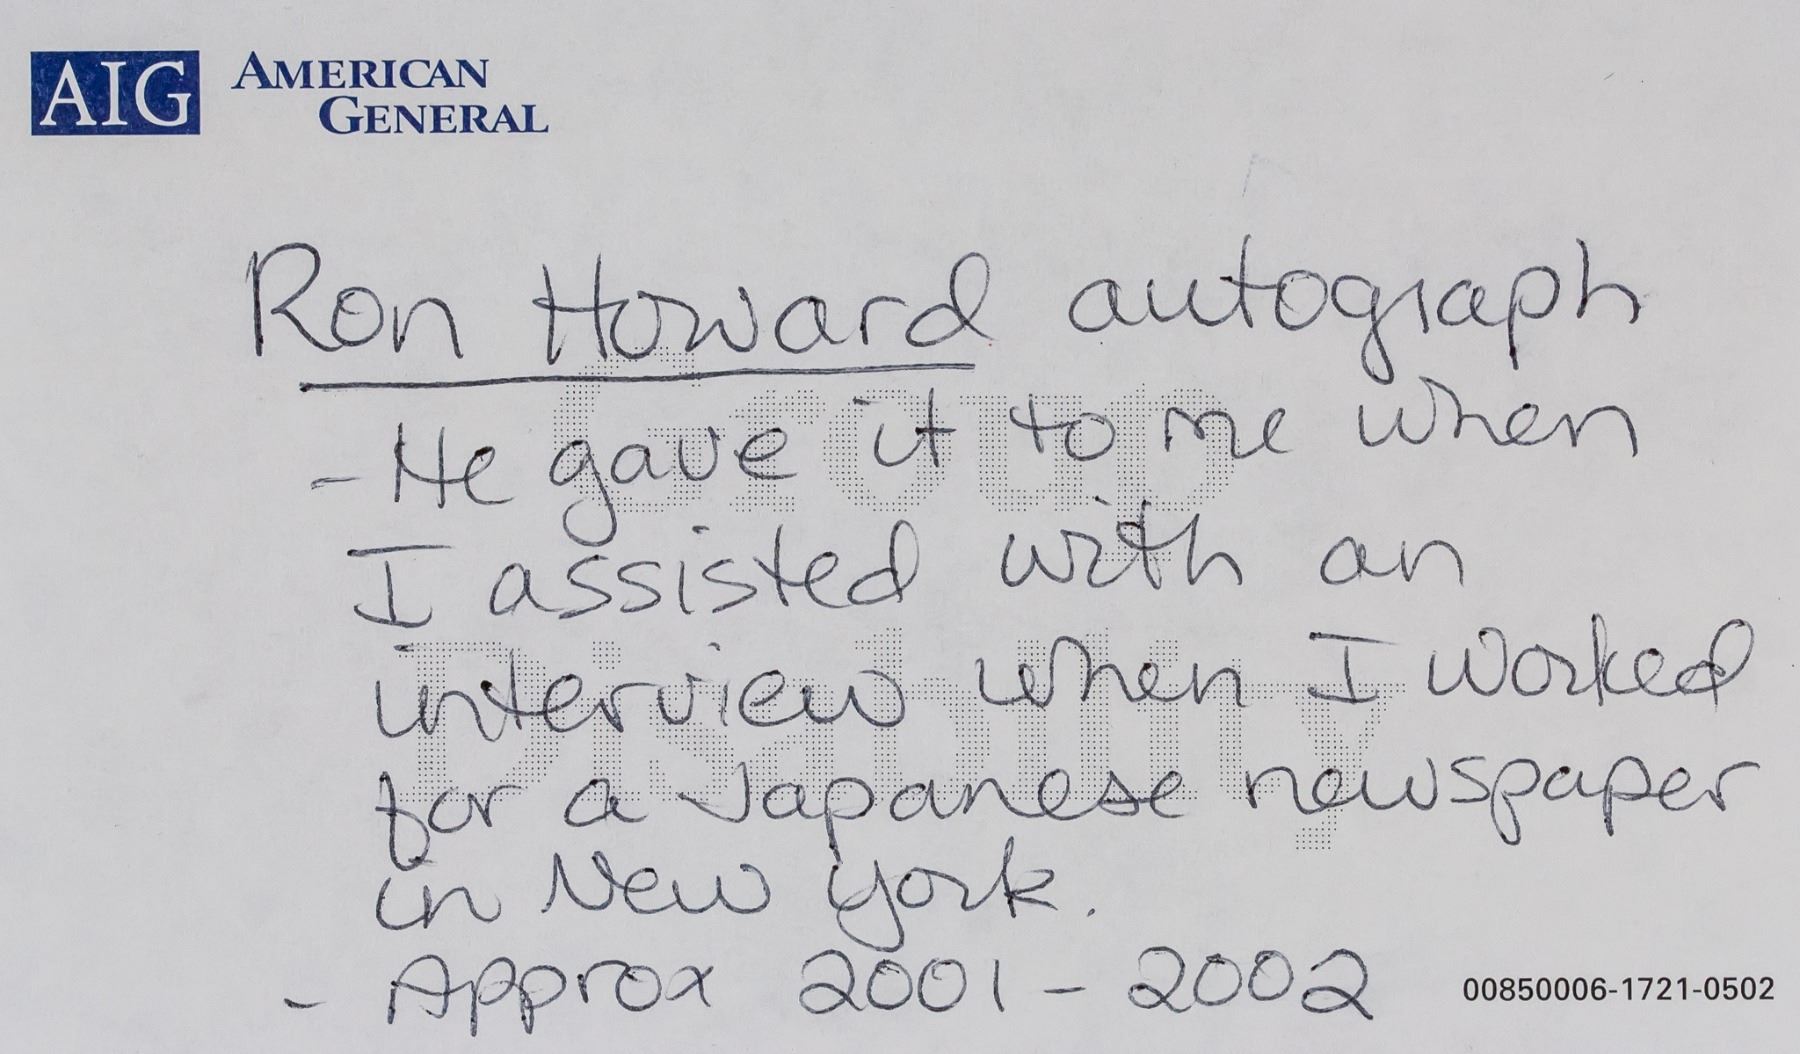 AIG AMERICAN
GENERAL
Ron Howard autograph
- He gave it to me when
I assisted with an
interview when I worked
for a Japanese newspaper
in New York.
- Approx 2001 - 2002
00850006-1721-0502
Group
Disability